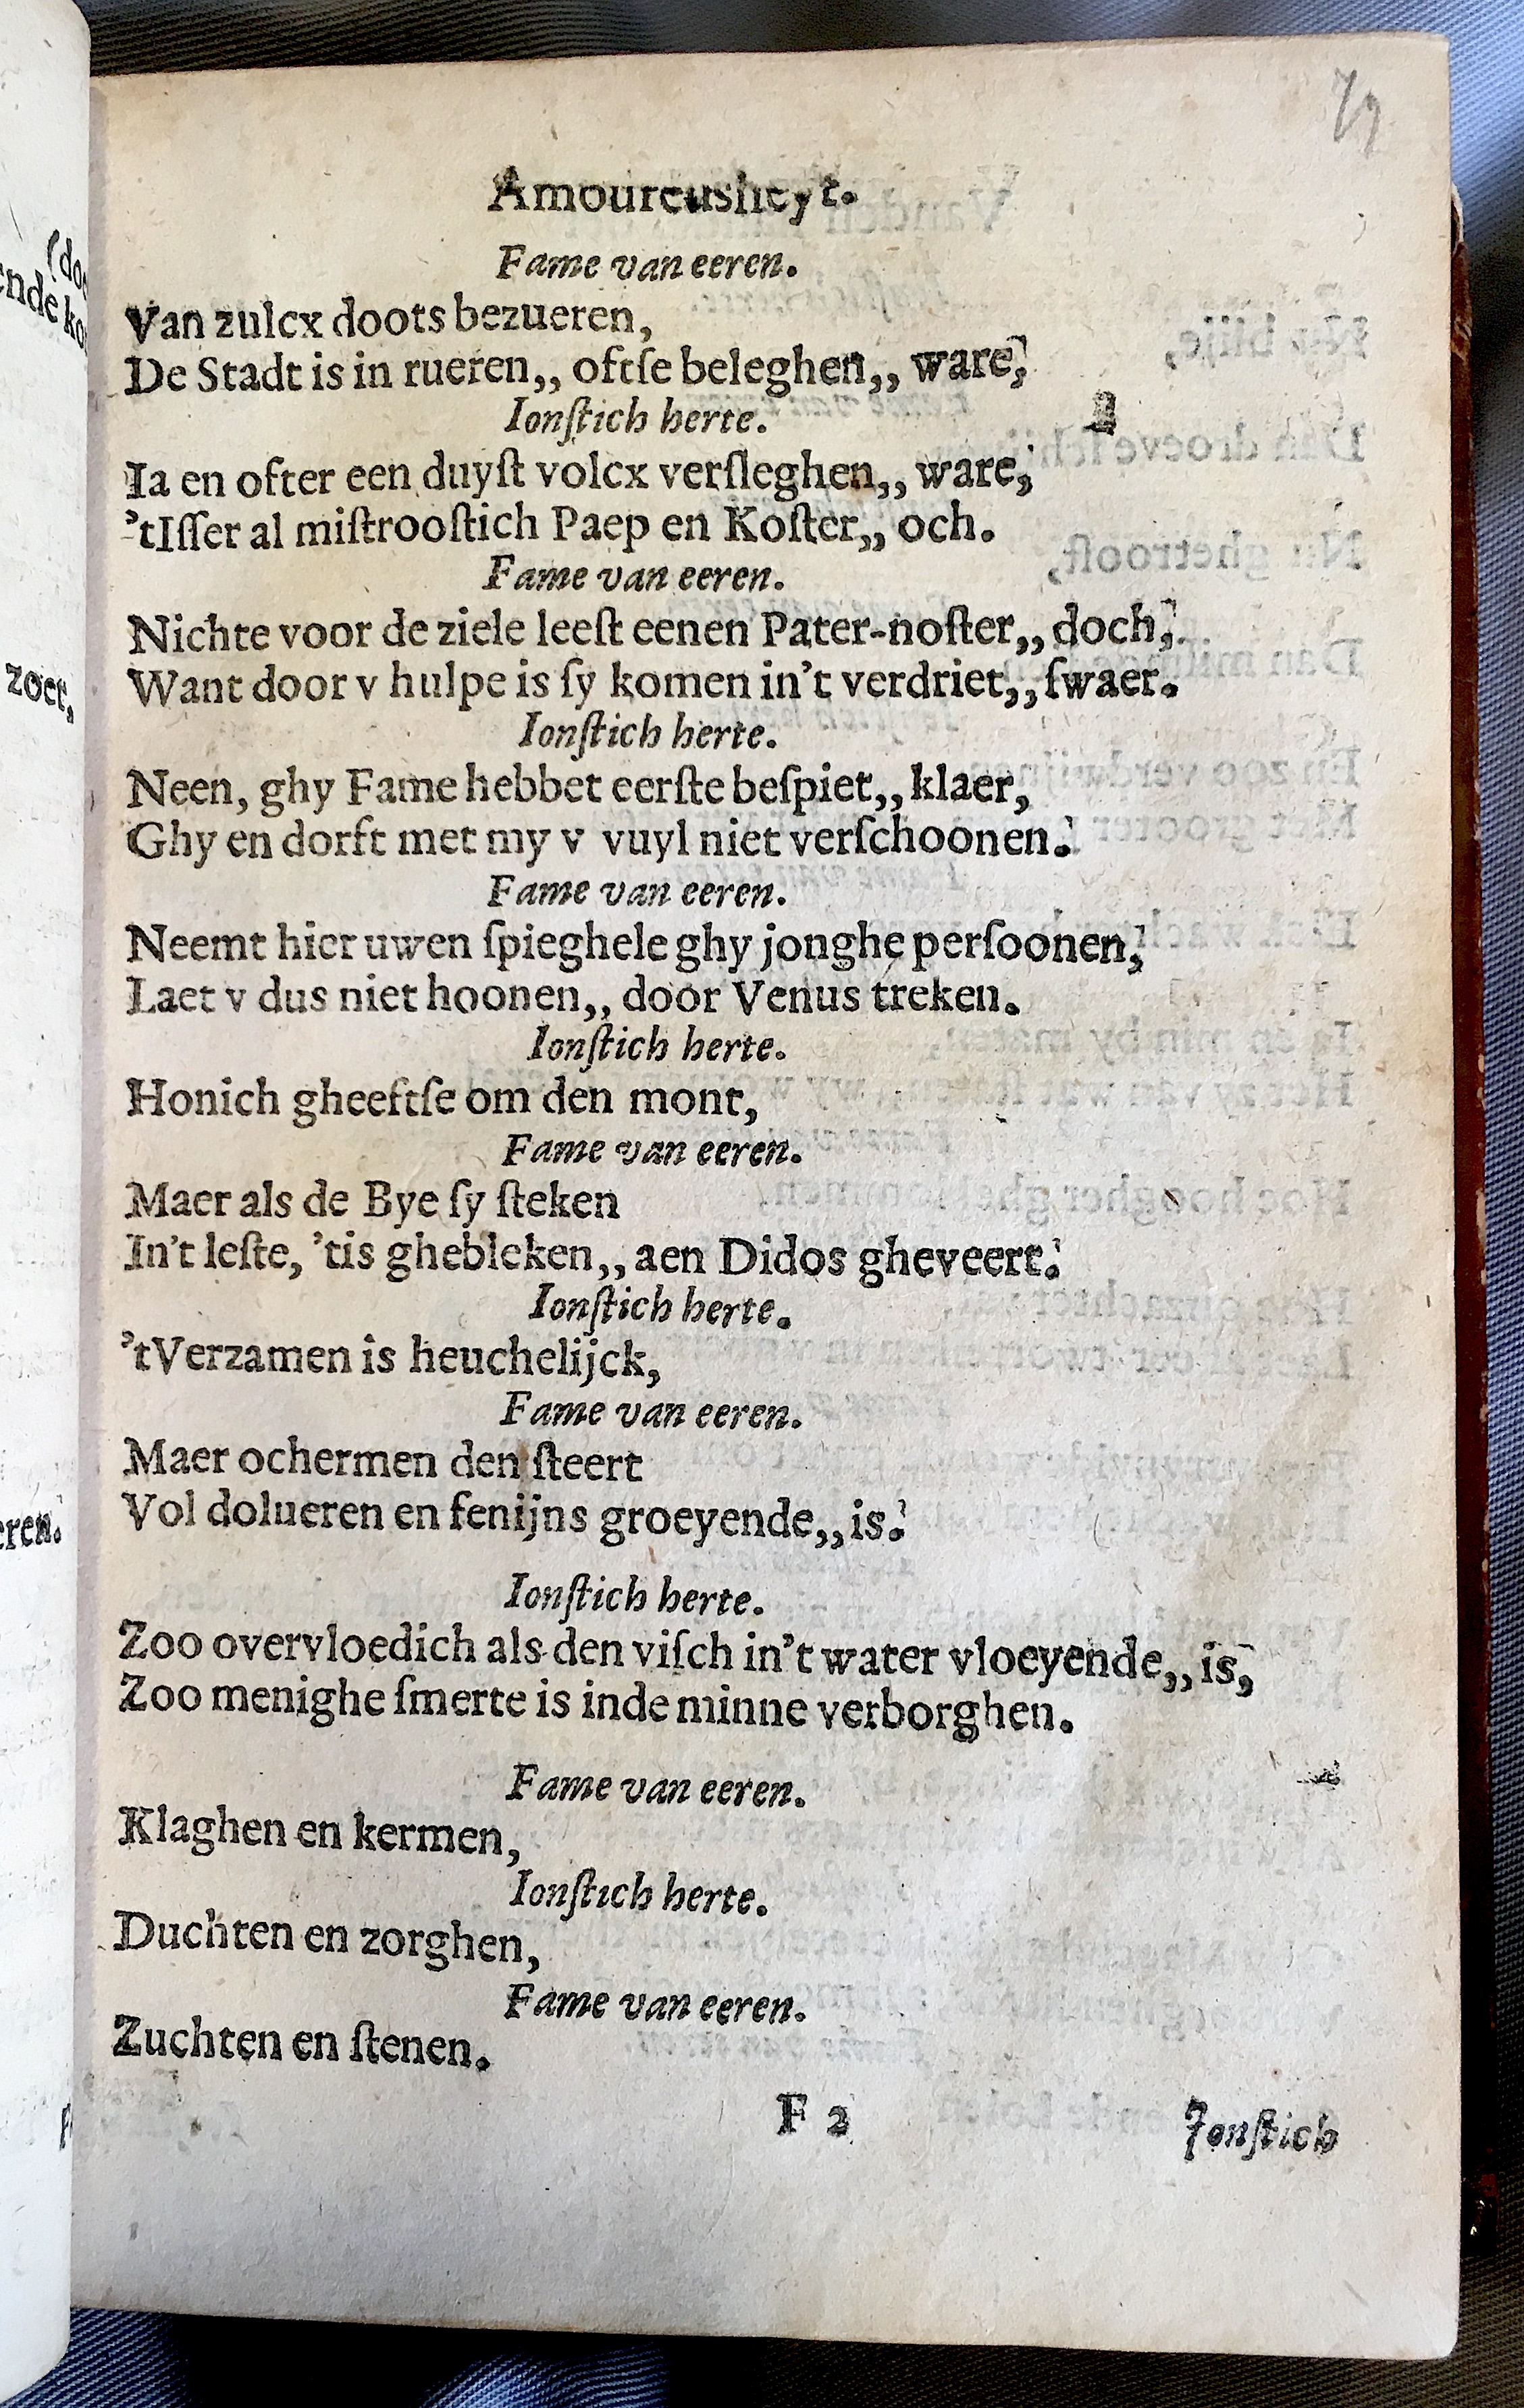 79
Amoureusheyt.
Fame van eeren.
Van zulcx doots bezueren,
De Stadt is in rueren,, oftſe beleghen,, ware,
Ionſtich herte.
Ia en ofter een duyſt volcx verſleghen,, ware,
'tIſſer al miſtrooſtich Paep en Koſter,, och.
Fame van eeren.
Nichte voor de ziele leeſt eenen Pater-noſter,, doch,
Want door v hulpe is ſy komen in't verdriet,, ſwaer.
Ionſtich herte.
Neen, ghy Fame hebbet eerſte beſpiet,, klaer,
Ghy en dorft met my v vuyl niet verſchoonen.
Fame van eeren.
Neemt hier uwen ſpieghele ghy jonghe perſoonen,
Laet v dus niet hoonen,, door Venus treken.
Ionſtich herte.
Honich gheeftſe om den mont,
Fame van eeren.
Maer als de Bye ſy ſteken
In't leſte, 'tis ghebleken,, aen Didos gheveert.
Ionſtich herte.
'tVerzamen is heuchelijck,
Fame van eeren.
Maer ochermen den ſteert
Vol dolueren en fenijns groeyende,, is.
Ionſtich herte.
Zoo overvloedich als den viſch in't water vloeyende,, is,
Zoo menighe ſmerte is inde minne verborghen.
Fame van eeren.
Klaghen en kermen,
Ionſtich herte.
Duchten en zorghen,
Fame van eeren.
Zuchten en ſtenen.
F 2
Jonſtich
(doo
ende ko
zoet,
eren.